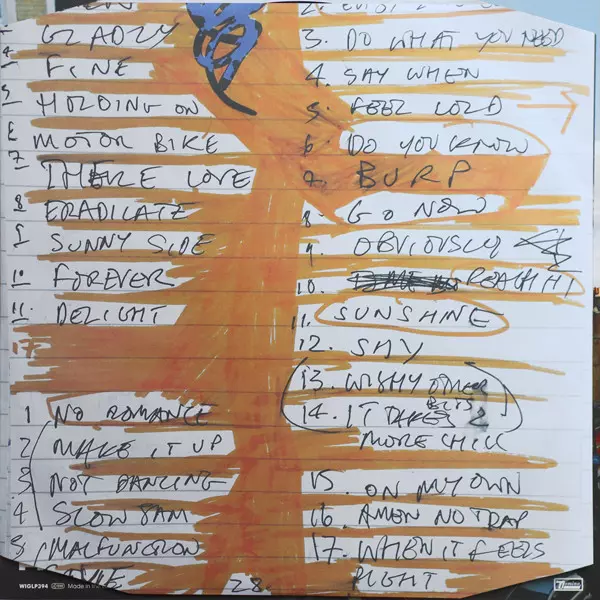 GLADLY
FINE
5 HOLDING ON
6 MOTOR BIKE
7 THERE LOVE
8 ERADICATE
9 SUNNY SIDE
10 FOREVER
11. DELIGHT
1 NO ROMANCE
2 MAKE IT UP
3 NOT DANCING
4 SLOW JAM
5 MALFUNCTION
3. DO WHAT YOU NEED
4. SAY WHEN
5. FEEL COLD
6. DO YOU KNOW
7. BURP
8. GO NOW
9. OBVIOUSLY
10. REACH IT
11. SUNSHINE
12. SAY
13. WISHY OTHER
BITS
14. IT TAKES 2
MORE CHILL
15. ON MY OWN
16. AMEN NO TRAP
17. WHEN IT FEELS
RIGHT
28.
WIGLP394 Made in the
Domino